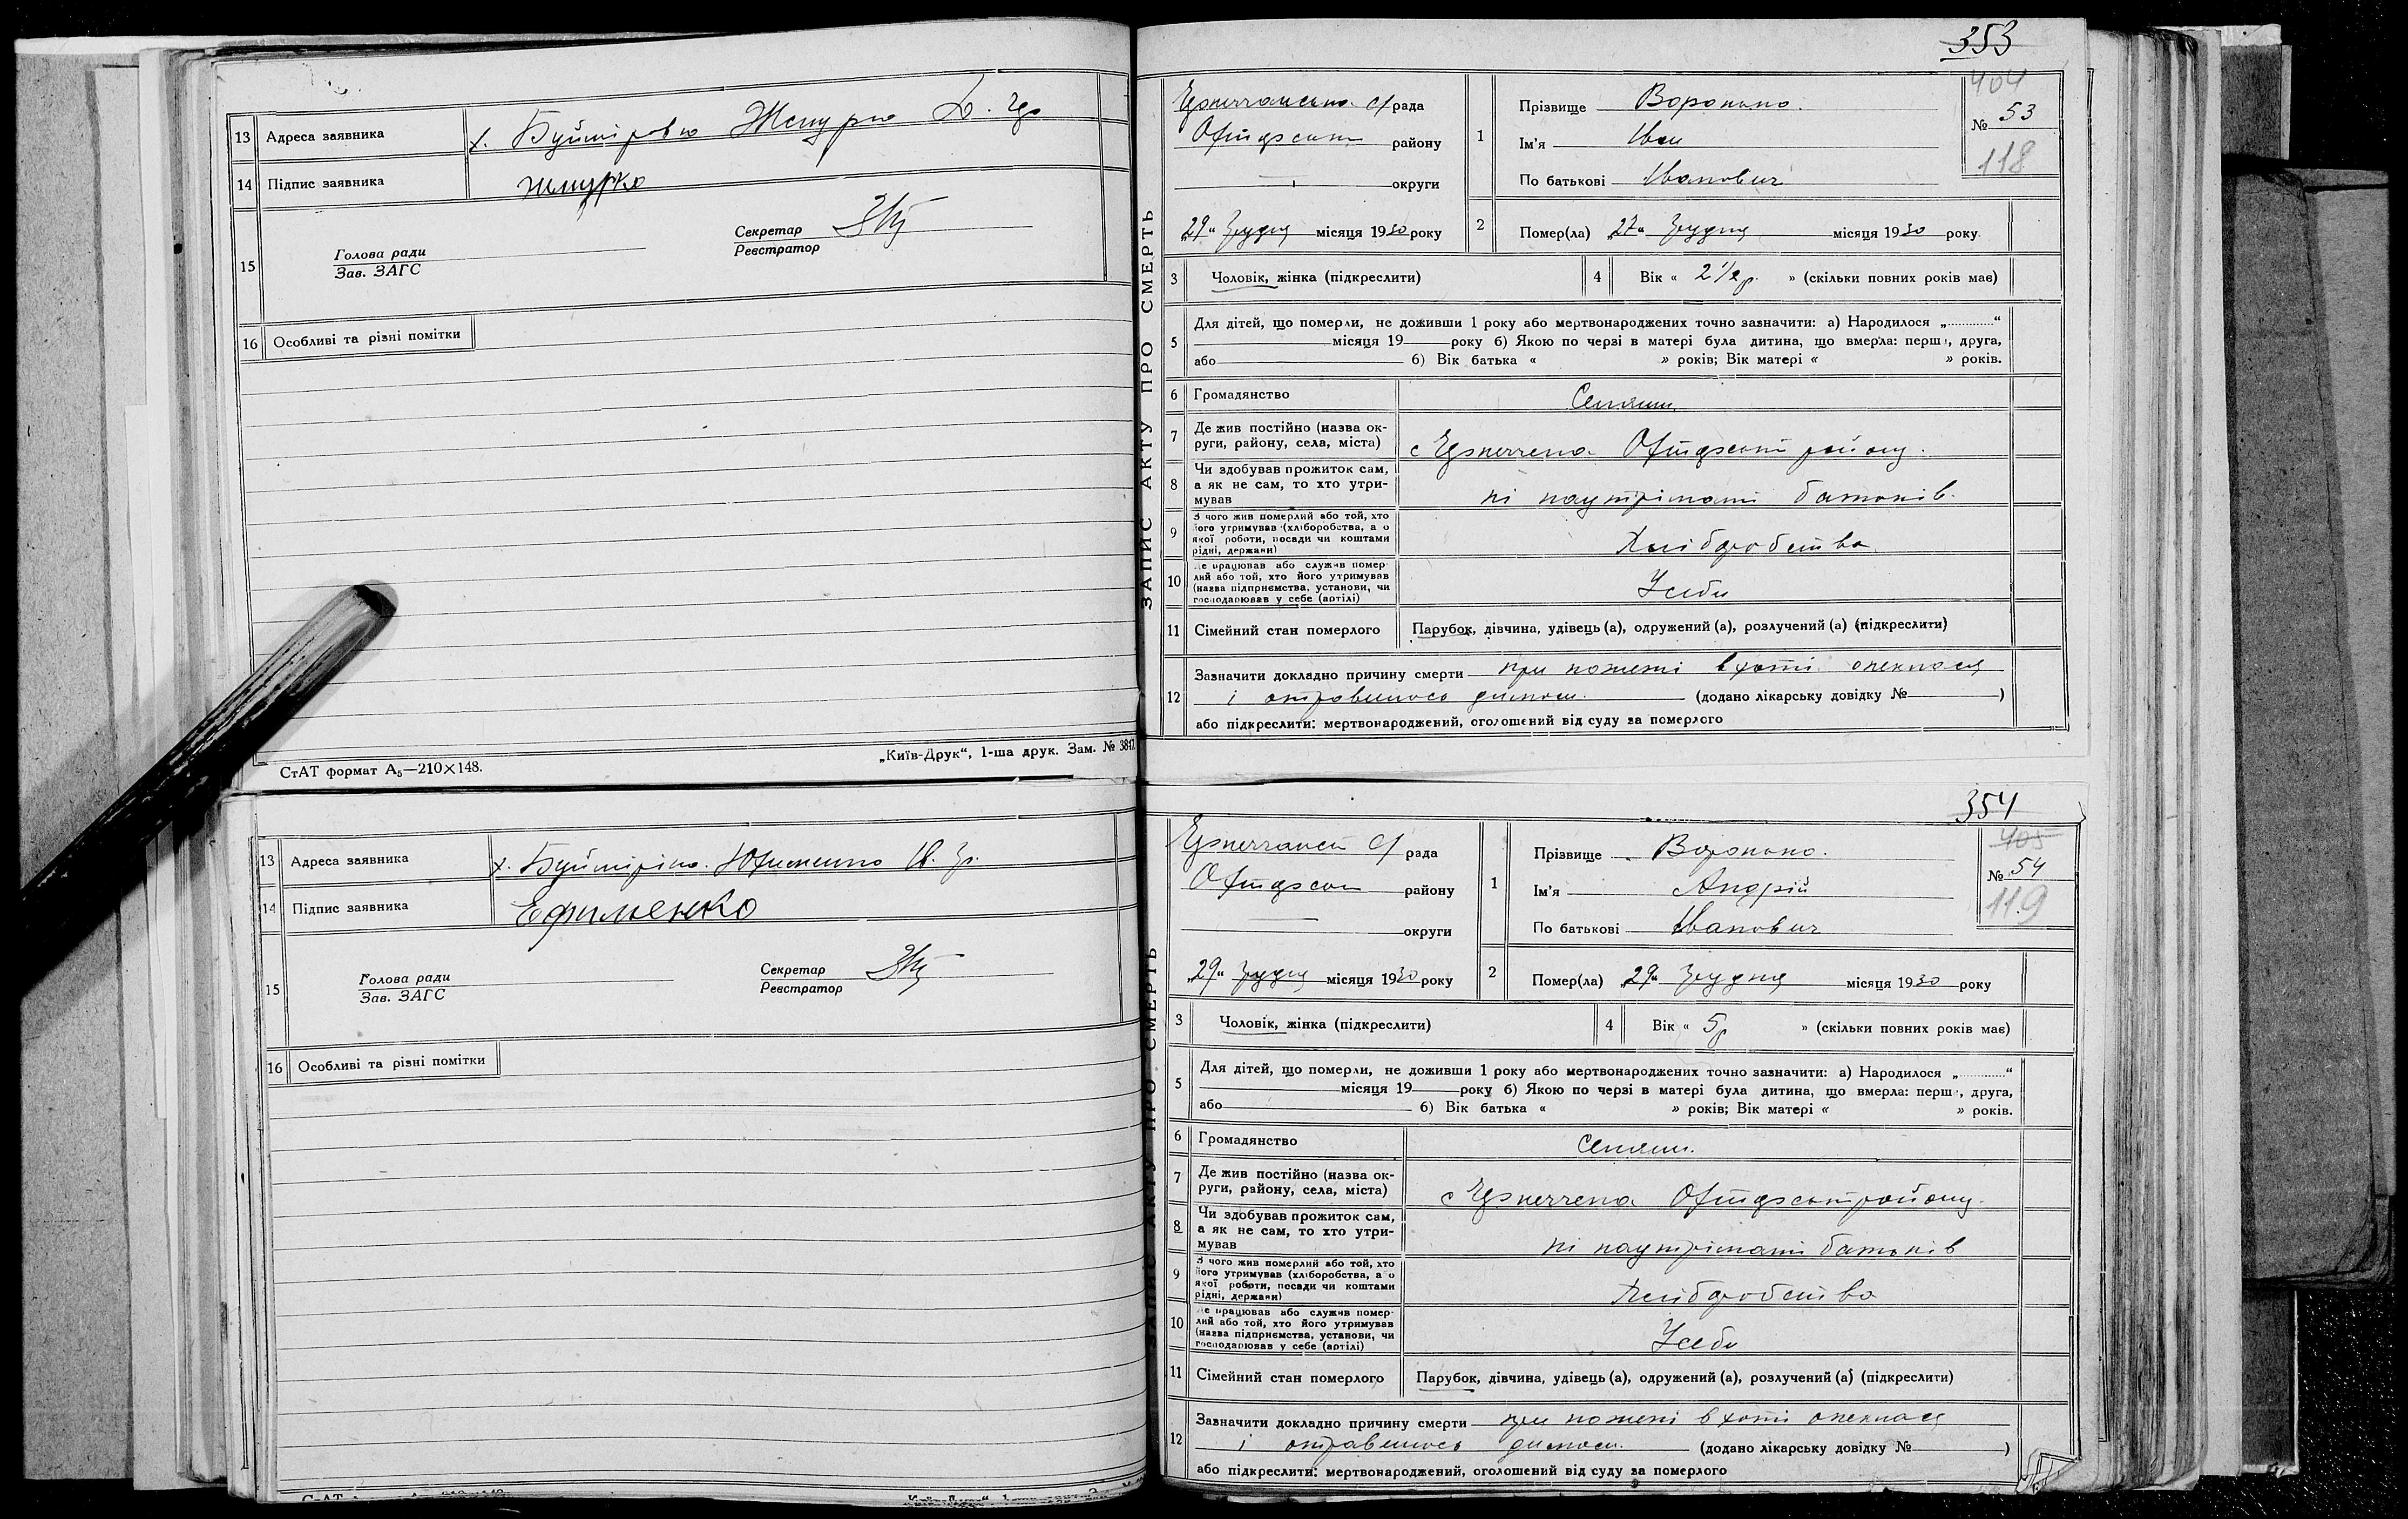 13 Адреса заявника х. Буймірівка Жмурко
14 Підпис заявника Жмурко
15 Голова ради
Зав. ЗАГС
Секретар
Реєстратор
16 Особливі та різні помітки
СтАТ формат А₅—210×148.
„Київ-Друк“, 1-ша друк. Зам. № 3847.
13 Адреса заявника х.
14 Підпис заявника Ефименко
15 Голова ради
Зав. ЗАГС
Секретар
Реєстратор
16 Особливі та різні помітки
353
ЗАПИС АКТУ ПРО СМЕРТЬ
рада
району
округи
„29“ грудня місяця 1930 року
404
№ 53
118
1 Прізвище
Ім'я Іван
По батькові Іванович
2 Помер(ла) „27“ грудня місяця 1930 року
3 Чоловік, жінка (підкреслити)
4 Вік « 2 1/2 р. » (скільки повних років має)
5 Для дітей, що померли, не доживши 1 року або мертвонароджених точно зазначити: а) Народилося „............“
місяця 19 року б) Якою по черзі в матері була дитина, що вмерла: перша, друга,
або 6) Вік батька « » років; Вік матері « » років.
6 Громадянство Селянин
7 Де жив постійно (назва ок-
руги, району, села, міста) с району.
8 Чи здобував прожиток сам,
а як не сам, то хто утри-
мував ні на утріманні батьків.
9 З чого жив померлий або той, хто
його утримував (хліборобства, а о
якої роботи, посади чи коштами
рідні, держави) Хліборобство
10 Де працював або служив помер-
лий або той, хто його утримував
(назва підприємства, установи, чи
господарював у себе (артілі) У себе
11 Сімейний стан померлого Парубок, дівчина, удівець (а), одружений (а), розлучений (а) (підкреслити)
12 Зазначити докладно причину смерти при пожежі в хаті опеклася
і отравилось димом. (додано лікарську довідку № )
або підкреслити: мертвонароджений, оголошений від суду за померлого
354
ЗАПИС АКТУ ПРО СМЕРТЬ
рада
району
округи
„29“ грудня місяця 1930 року
405
№ 54
119
1 Прізвище
Ім'я Андрій
По батькові Іванович
2 Помер(ла) „29“ грудня місяця 1930 року
3 Чоловік, жінка (підкреслити)
4 Вік « 5 р » (скільки повних років має)
5 Для дітей, що померли, не доживши 1 року або мертвонароджених точно зазначити: а) Народилося „............“
місяця 19 року б) Якою по черзі в матері була дитина, що вмерла: перша, друга,
або 6) Вік батька « » років; Вік матері « » років.
6 Громадянство Селянин.
7 Де жив постійно (назва ок-
руги, району, села, міста) с району.
8 Чи здобував прожиток сам,
а як не сам, то хто утри-
мував ні на утріманні батьків
9 З чого жив померлий або той, хто
його утримував (хліборобства, а о
якої роботи, посади чи коштами
рідні, держави) Хліборобство
10 Де працював або служив помер-
лий або той, хто його утримував
(назва підприємства, установи, чи
господарював у себе (артілі) У себе
11 Сімейний стан померлого Парубок, дівчина, удівець (а), одружений (а), розлучений (а) (підкреслити)
12 Зазначити докладно причину смерти при пожежі в хаті опеклася
і отравилось димом. (додано лікарську довідку № )
або підкреслити: мертвонароджений, оголошений від суду за померлого